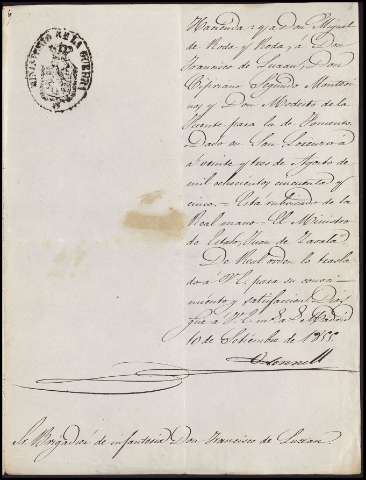 MINISTERIO DE LA GUERRA
Hacienda: y a Don Miguel
de Roda y Roda, a Don
Francisco de Luxan, Don
Cipriano Segundo Montesi-
no, y Don Modesto de la
Fuente para la de Fomento.
Dado en San Lorenzo á
á veinte y tres de Agosto de
mil ochocientos cincuenta y
cinco. = Está rubricado de la
Real mano. = El Ministro
de Estado, Juan de Zavala.
De Real orden lo trasla-
do á V.E. para su conoci-
miento y satisfaccion. Dios
gue á V.E. m. a. Madrid
10 de Setiembre de 1855.
O'Donnell
Sr. Brigadier de infanteria Don Francisco de Luxan.